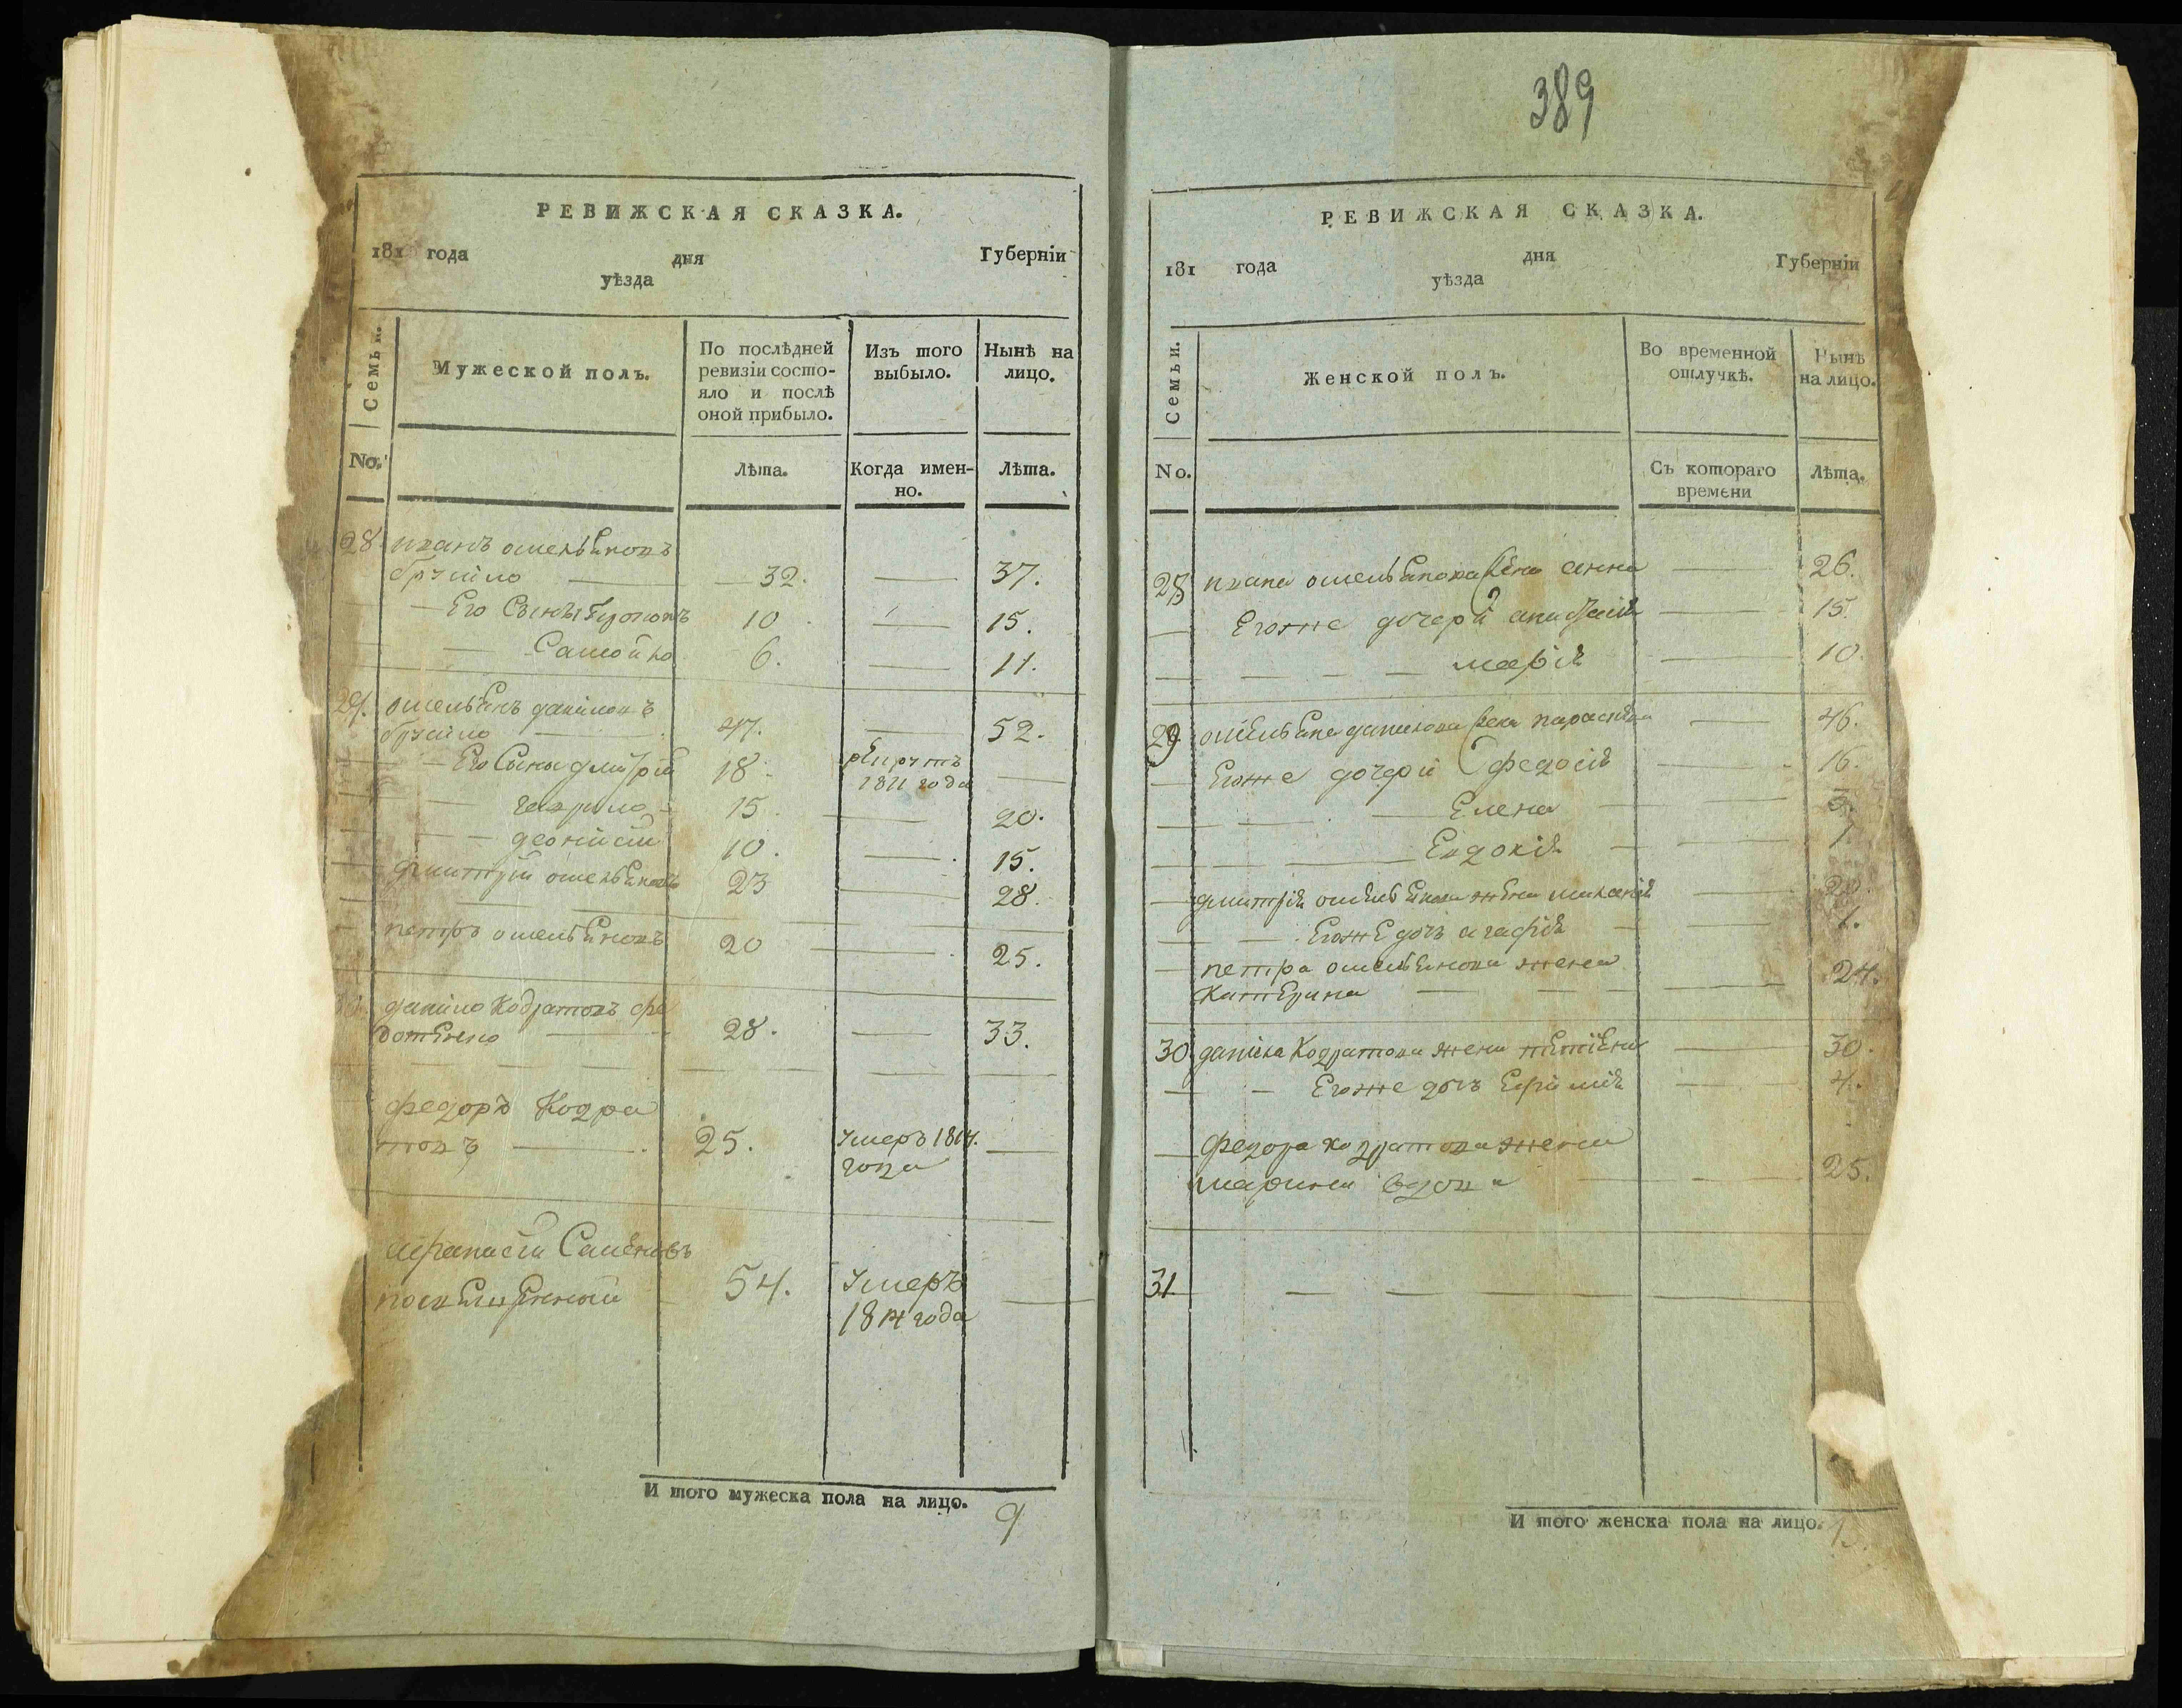 389
РЕВИЖСКАЯ СКАЗКА.
181 года дня Губерніи
уѣзда
Семьи.
Мужеской полъ.
По послѣдней
ревизіи состо-
яло и послѣ
оной прибыло.
Изъ того
выбыло.
Нынѣ на
лицо.
No.
Лѣта.
Когда имен-
но.
Лѣта.
28 иванъ омельяновъ
32. 37.
Его Сынъ 10 15.
Самойло 6. 11.
29. омельянъ даниловъ
47. 52.
Его Сыны дмитрій 18 рекрутъ
1811 года
гаврило 15 20.
деонисій 10. 15.
дмитрій омельяновъ 23 28.
петръ омельяновъ 20 25.
данило Кодратовъ фе
дотенко 28. 33.
федоръ Кодра
товъ 25. умеръ 1814.
года
афанасій Семеновъ
54. умеръ
1814 года
И того мужеска пола на лицо. 9
РЕВИЖСКАЯ СКАЗКА.
181 года дня Губерніи
уѣзда
Семьи.
Женской полъ.
Во временной
отлучкѣ.
Нынѣ
на лицо.
No.
Съ котораго
времени
Лѣта.
28 ивана омельянова жена анна 26.
Егоже дочери 15.
марія 10.
29 омельяна данилова жена параскева 46.
Егоже дочери федосія 16.
Елена 3.
Евдокія 1.
дмитрія омельянова жена
Егоже дочь агафія 1.
петра омельянова жена
Катерина 24.
30 данила Кодратова жена 30.
Егоже дочь Ефимія 4.
федора кодратова жена
марина вдова 25.
31
И того женска пола на лицо. 13.